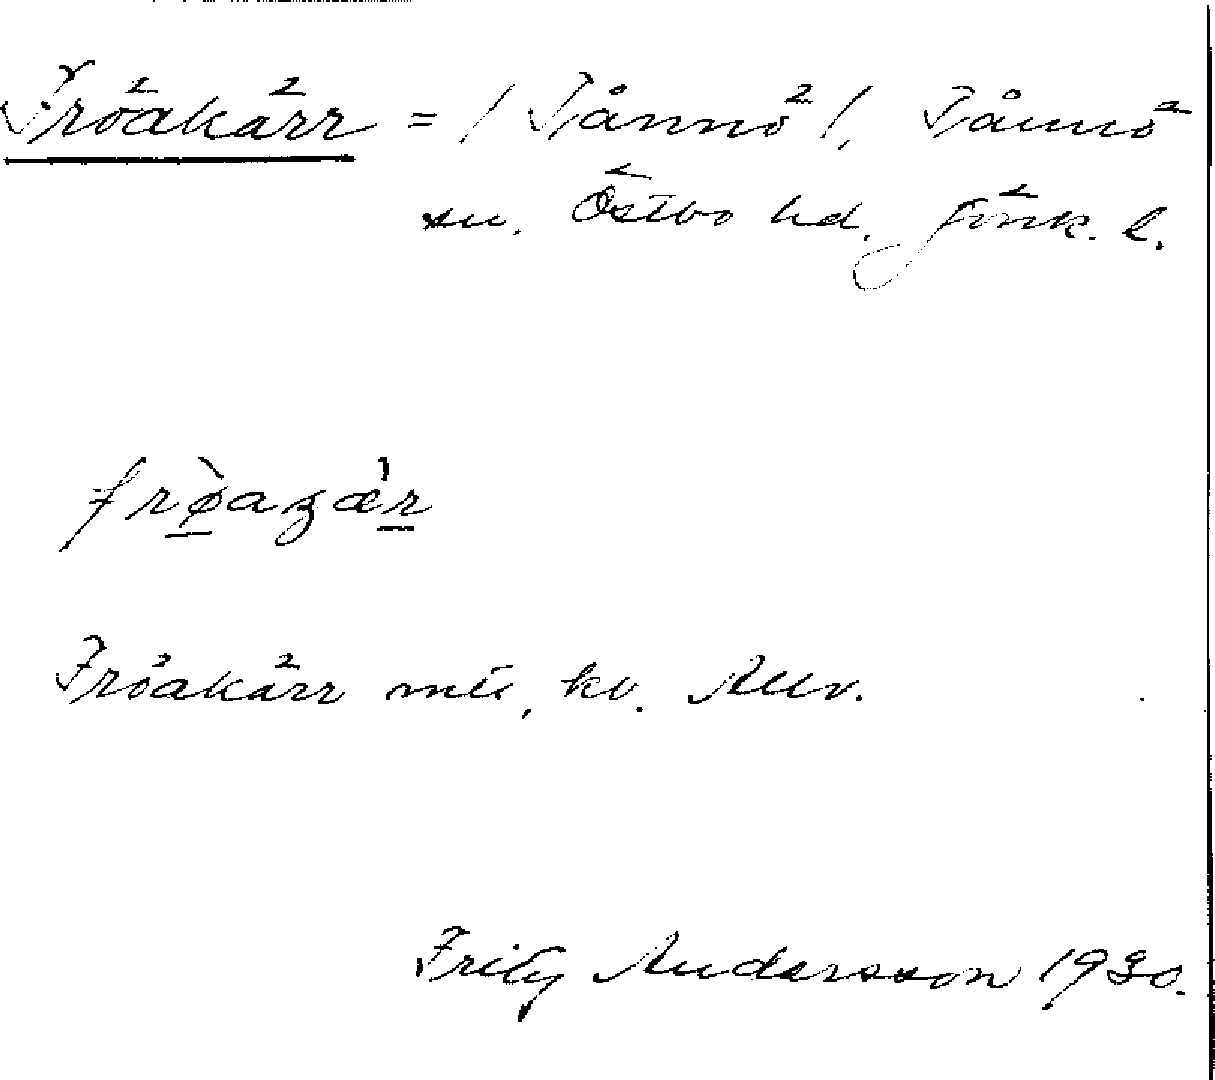 Fröakärr = / Tånnö /, Tånnö
sn. Östbo hd. Jönk. l.
frø̀azæ̀r
Fröakärr mti, kv. Allv.
Fritz Andersson 1930.